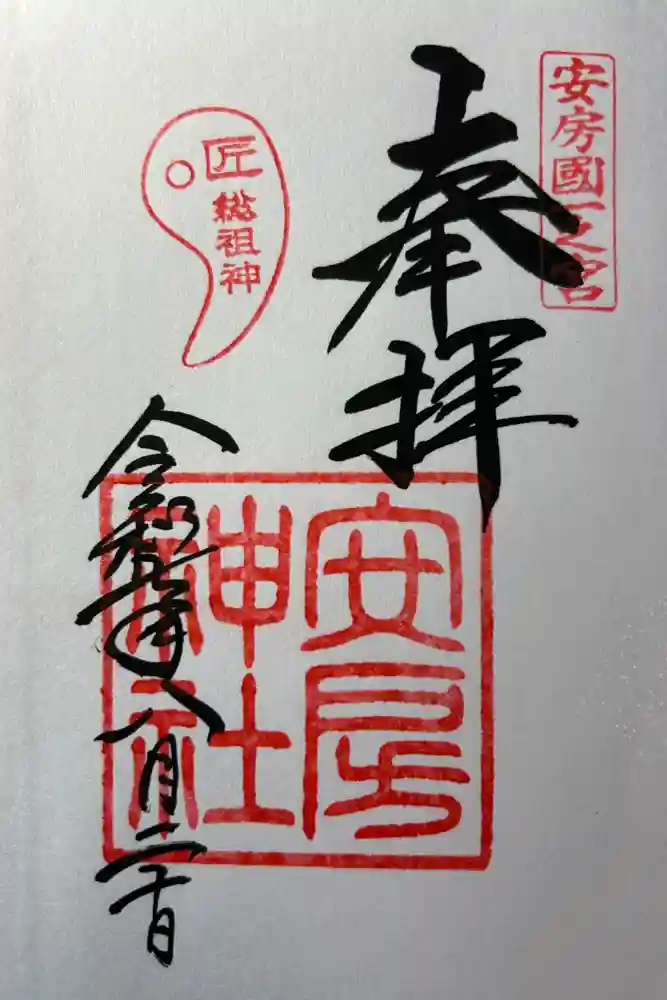 安房國一之宮
奉拝
安房
神社
匠
総祖神
令和年八月二十日